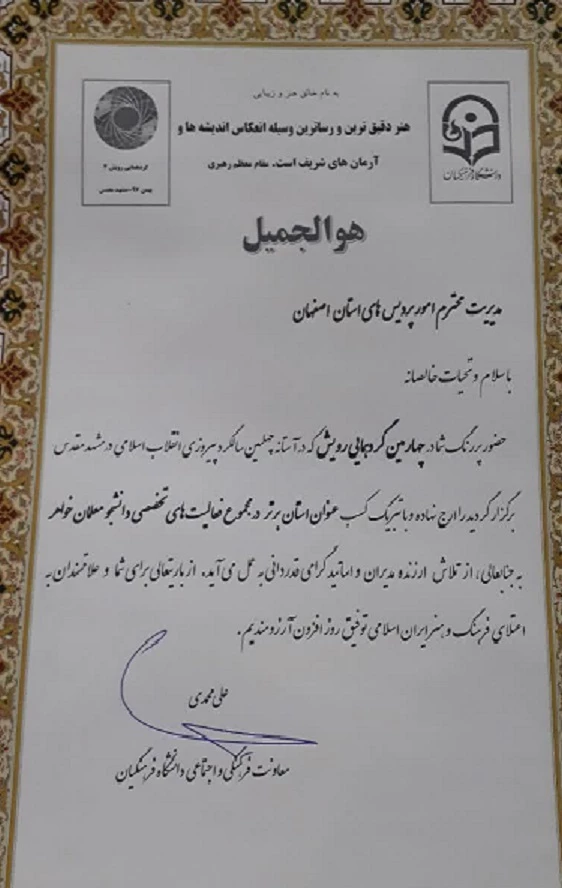 به نام خالق هنر و زیبایی
هنر دقیق ترین و رساترین وسیله انعکاس اندیشه ها و
آرمان های شریف است. مقام معظم رهبری
گردهمایی رویش ۴
بهمن ۹۷-مشهد مقدس
دانشگاه فرهنگیان
هوالجمیل
مدیریت محترم امور پردیس های استان اصفهان
با سلام و تحیات خالصانه
حضور پررنگ شما در چهارمین گردهمایی رویش که در آستانه چهلمین سالگرد پیروزی انقلاب اسلامی در مشهد مقدس
برگزار گردید را ارج نهاده و با تبریک کسب عنوان استان برتر در مجموع فعالیت های تخصصی دانشجو معلمان خواهر
به جنابعالی، از تلاش ارزنده مدیران و اساتید گرامی قدردانی به عمل می آید. از باریتعالی برای شما و علاقمندان به
اعتلای فرهنگ و هنر ایران اسلامی توفیق روز افزون آرزومندیم.
علی محمدی
معاونت فرهنگی و اجتماعی دانشگاه فرهنگیان